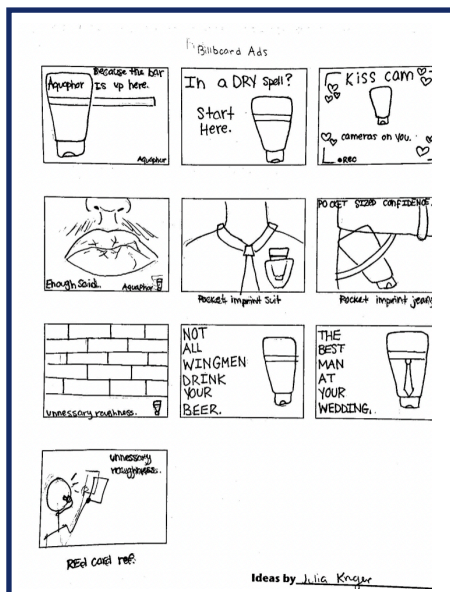 Billboard Ads
Aquaphor
Because the bar
Is up here.
Aquaphor
In a DRY spell?
Start
Here.
Kiss cam
cameras on you.
REC
Enough Said.
Aquaphor
Pocket imprint suit
POCKET SIZED CONFIDENCE.
Pocket imprint jeans
unnessary roughness.
NOT
ALL
WINGMEN
DRINK
YOUR
BEER.
THE
BEST
MAN
AT
YOUR
WEDDING.
unnessary
roughness.
Red card ref.
Ideas by Julia Kruger